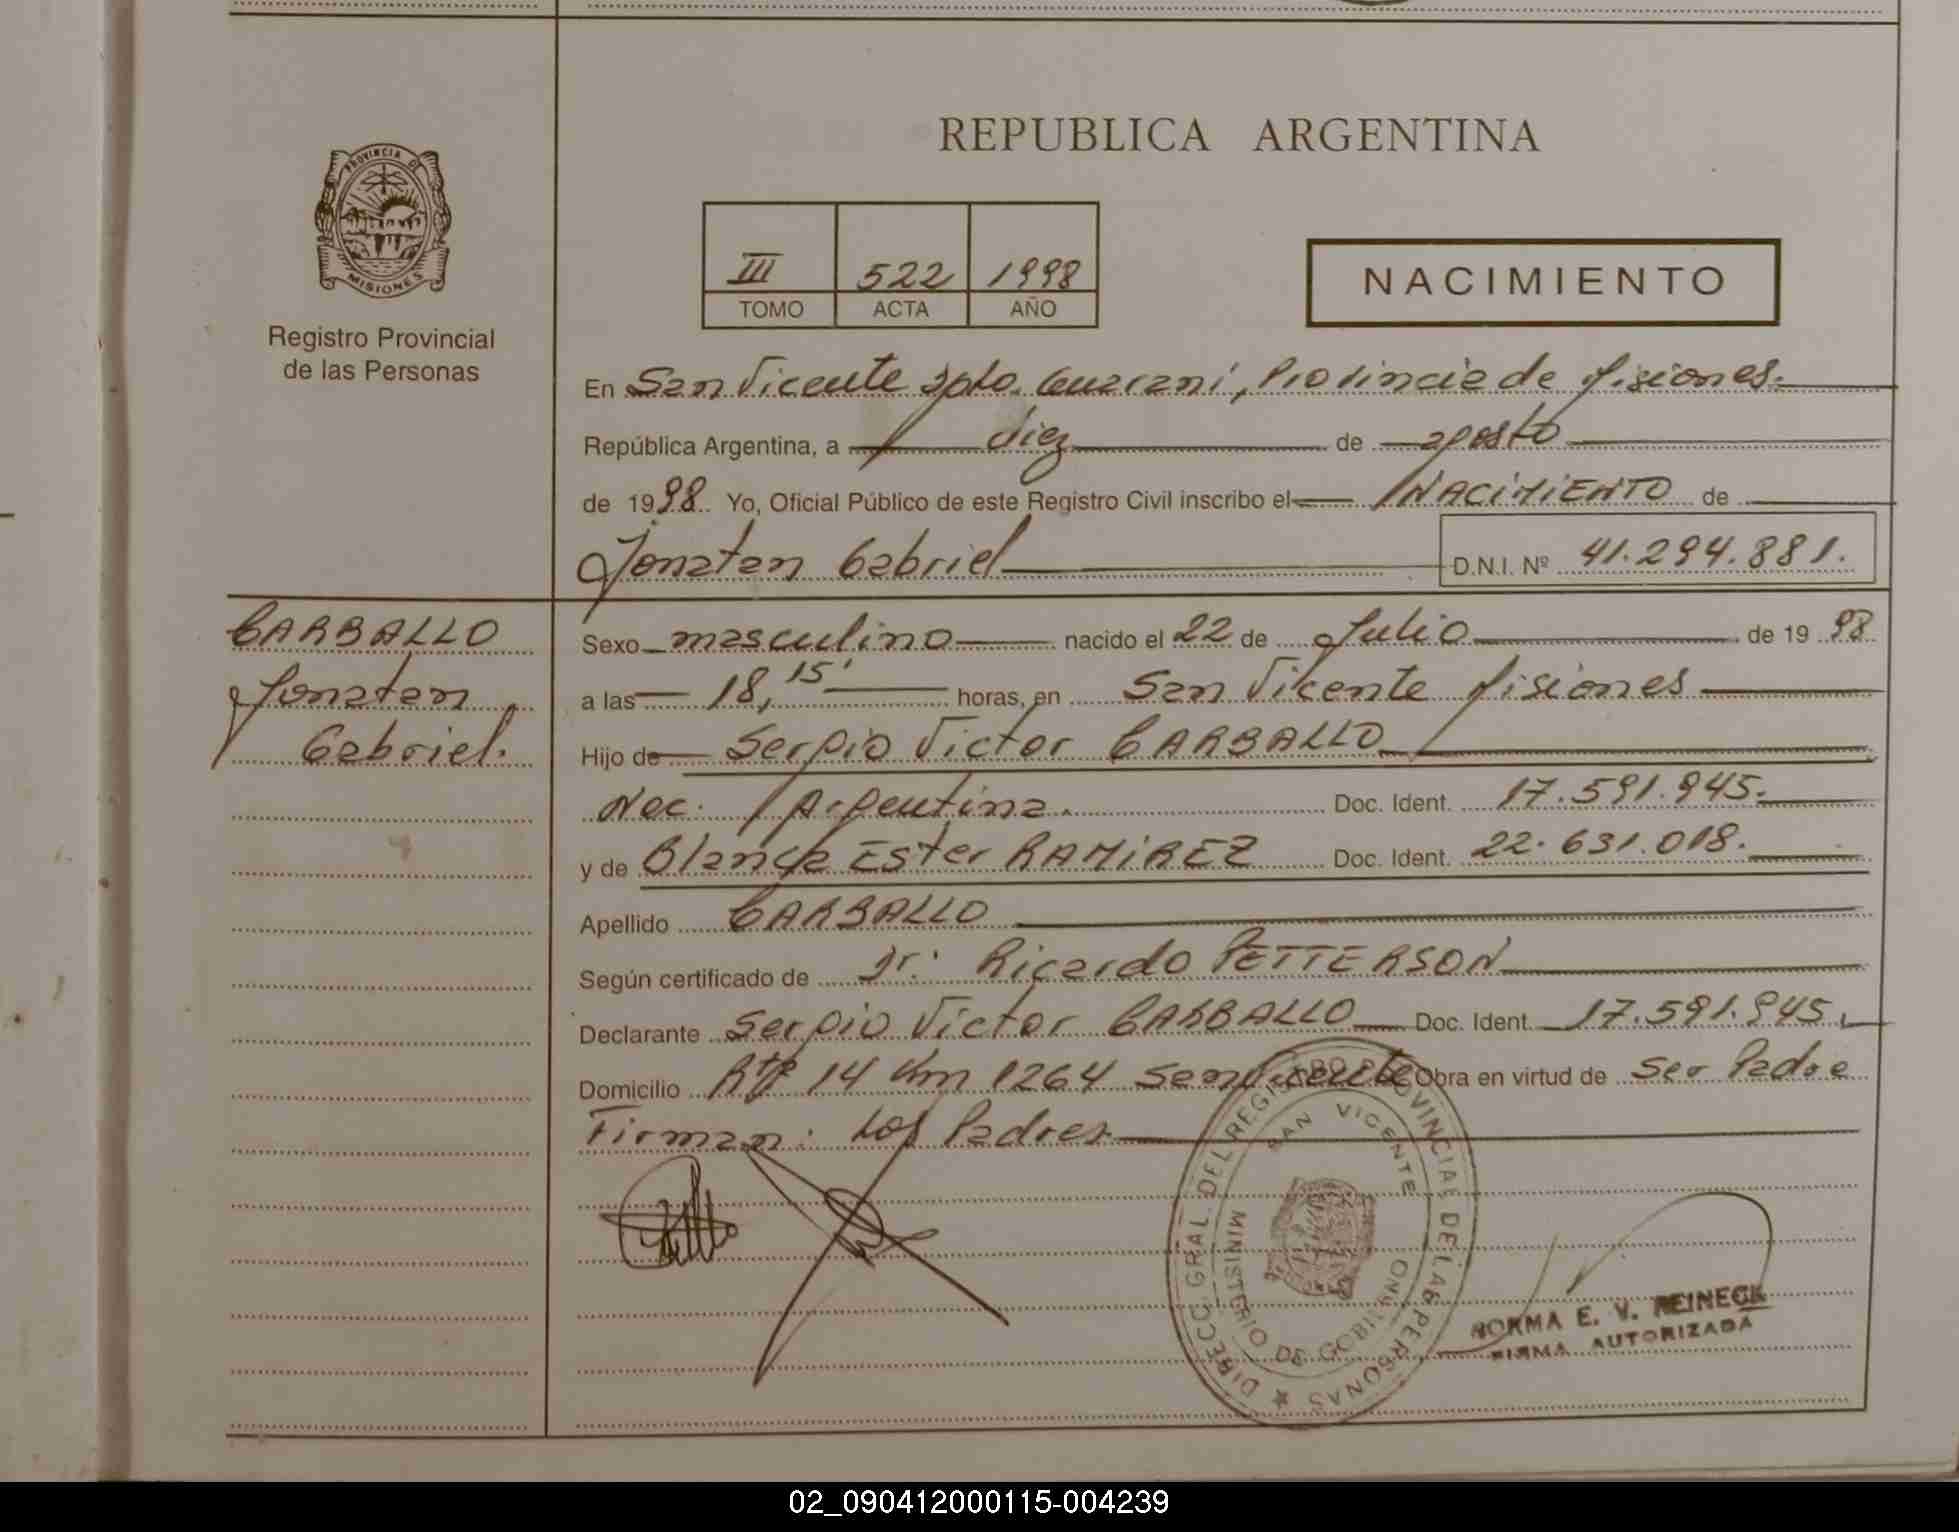 REPUBLICA ARGENTINA
PROVINCIA DE
MISIONES
Registro Provincial
de las Personas
III 522 1998
TOMO ACTA AÑO
NACIMIENTO
En San Vicente Dpto. Guaraní, Provincia de Misiones.
República Argentina, a diez de agosto
de 1998. Yo, Oficial Público de este Registro Civil inscribo el NACIMIENTO de
Jonatan Gabriel D.N.I. Nº 41.294.881.
CARBALLO
Jonatan
Gabriel.
Sexo masculino nacido el 22 de Julio de 19 98
a las 18,15' horas, en San Vicente Misiones
Hijo de Sergio Victor CARBALLO
Nac: Argentina. Doc. Ident. 17.591.945.
y de Blanca Ester RAMIREZ Doc. Ident. 22.631.018.
Apellido CARBALLO
Según certificado de Dr: Ricardo PETTERSON
Declarante Sergio Victor CARBALLO Doc. Ident. 17.591.945.
Domicilio Rta 14 Km 1264 San Vicente Obra en virtud de ser Padre
Firman: Los Padres
DIRECC. GRAL. DEL REGISTRO PROVINCIAL DE LAS PERSONAS
SAN VICENTE
MINISTERIO DE GOBIERNO
NORMA E. V. REINECK
FIRMA AUTORIZADA
02_090412000115-004239